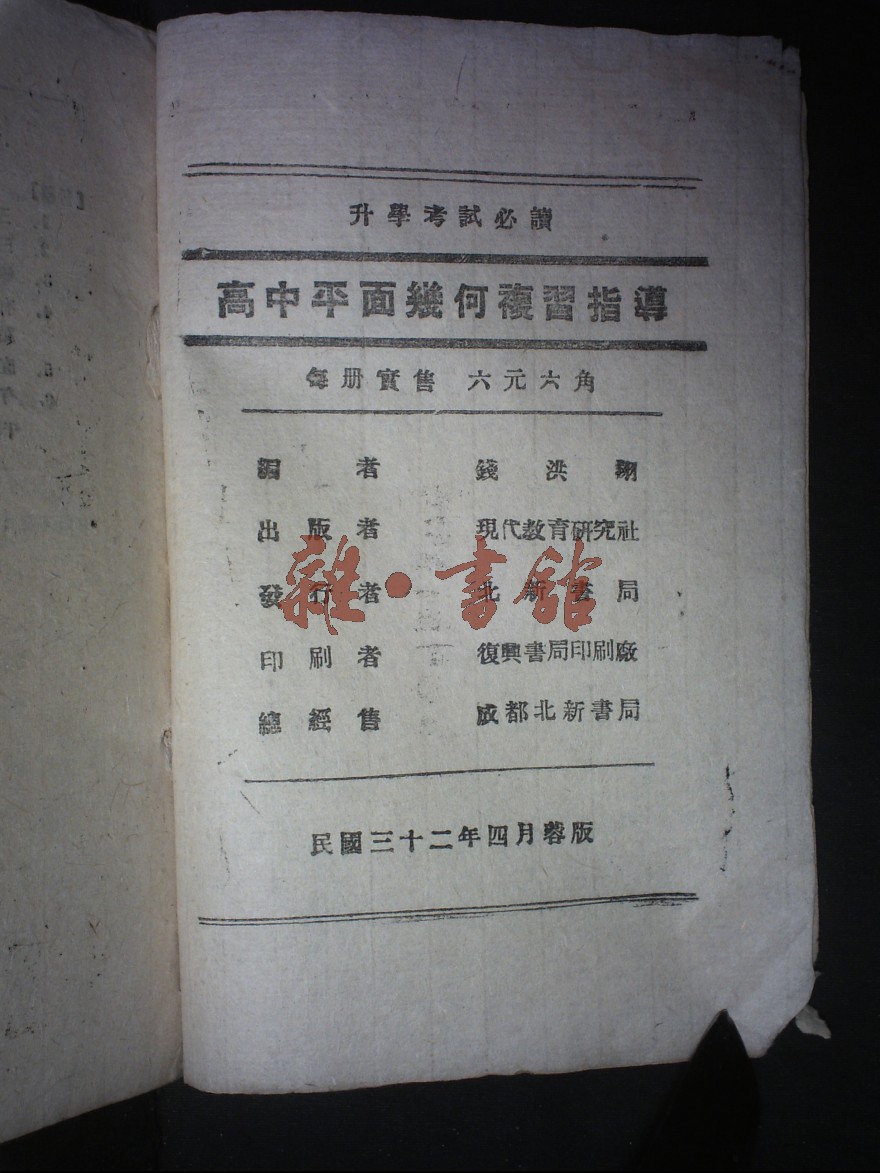 升學考試必讀
高中平面幾何複習指導
每册實售 六元六角
編者 錢洪翔
出版者 現代教育研究社
發行者 北新書局
印刷者 復興書局印刷廠
總經售 成都北新書局
民國三十二年四月蓉版
雜·書館